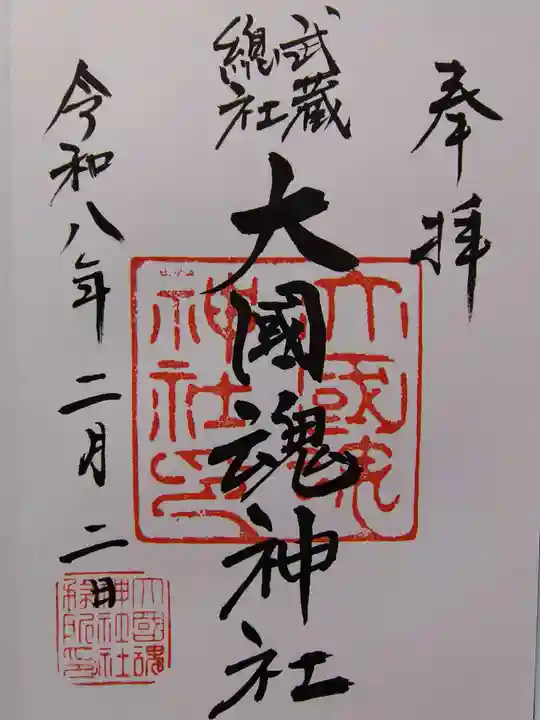 奉拝
武蔵
總社
大國魂神社
大國魂
神社印
令和八年二月二日
大國魂
神社社
務所印